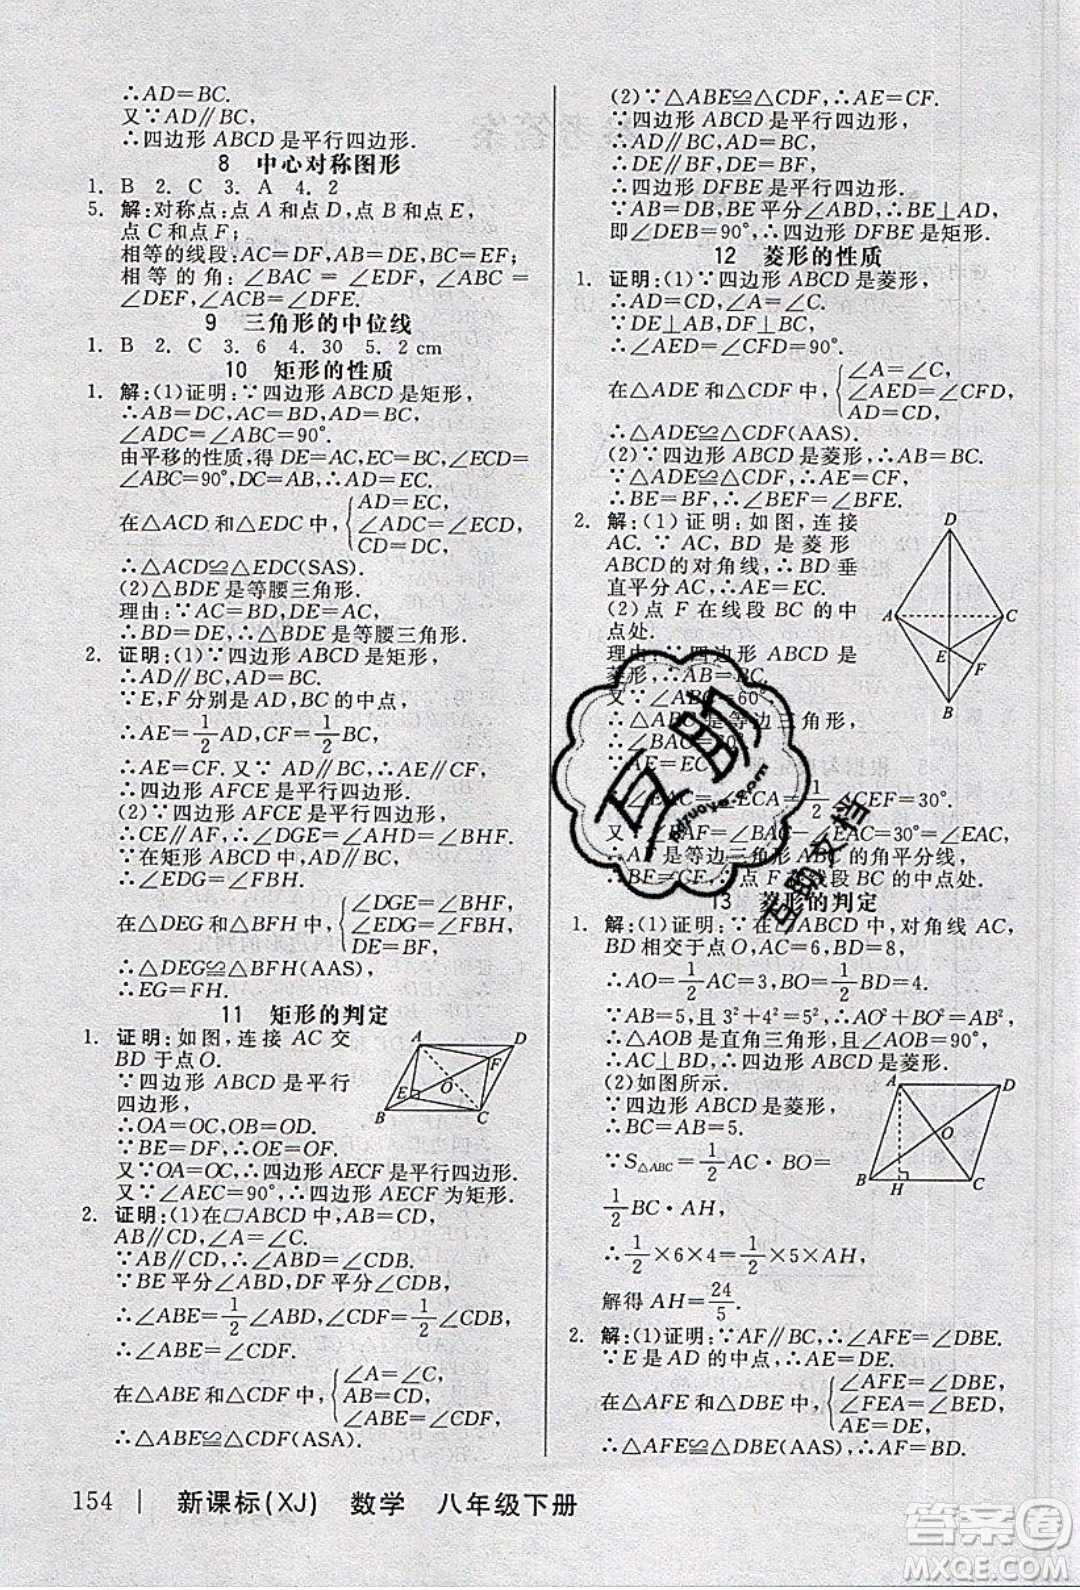 ∴AD=BC.
又∵AD∥BC,
∴四边形 ABCD 是平行四边形.
8 中心对称图形
1. B 2. C 3. A 4. 2
5. 解:对称点:点 A 和点 D,点 B 和点 E,
点 C 和点 F;
相等的线段:AC=DF,AB=DE,BC=EF;
相等的角:∠BAC=∠EDF,∠ABC=
∠DEF,∠ACB=∠DFE.
9 三角形的中位线
1. B 2. C 3. 6 4. 30 5. 2 cm
10 矩形的性质
1. 解:(1)证明:∵四边形 ABCD 是矩形,
∴AB=DC,AC=BD,AD=BC,
∠ADC=∠ABC=90°.
由平移的性质,得 DE=AC,EC=BC,∠ECD=
∠ABC=90°,DC=AB,∴AD=EC.
在△ACD 和△EDC 中,{AD=EC,
∠ADC=∠ECD,
CD=DC,
∴△ACD≌△EDC(SAS).
(2)△BDE 是等腰三角形.
理由:∵AC=BD,DE=AC,
∴BD=DE,∴△BDE 是等腰三角形.
2. 证明:(1)∵四边形 ABCD 是矩形,
∴AD∥BC,AD=BC.
∵E,F 分别是 AD,BC 的中点,
∴AE=1/2AD,CF=1/2BC,
∴AE=CF.又∵AE∥CF,
∴四边形 AFCE 是平行四边形.
(2)∵四边形 AFCE 是平行四边形,
∴CE∥AF,∴∠DGE=∠AHD=∠BHF.
∵在矩形 ABCD 中,AD∥BC,
∴∠EDG=∠FBH.
在△DEG 和△BFH 中,{∠DGE=∠BHF,
∠EDG=∠FBH,
DE=BF,
∴△DEG≌△BFH(AAS),
∴EG=FH.
11 矩形的判定
1. 证明:如图,连接 AC 交
BD 于点 O.
∵四边形 ABCD 是平行
四边形,
∴OA=OC,OB=OD.
∵BE=DF,∴OE=OF.
又∵OA=OC,∴四边形 AECF 是平行四边形.
又∵∠AEC=90°,∴四边形 AECF 为矩形.
A D F E O B C
2. 证明:(1)在▱ABCD 中,AB=CD,
AB∥CD,∠A=∠C.
∵AB∥CD,∴∠ABD=∠CDB.
∵BE 平分∠ABD,DF 平分∠CDB,
∴∠ABE=1/2∠ABD,∠CDF=1/2∠CDB,
∴∠ABE=∠CDF.
在△ABE 和△CDF 中,{∠A=∠C,
AB=CD,
∠ABE=∠CDF,
∴△ABE≌△CDF(ASA).
(2)∵△ABE≌△CDF,∴AE=CF.
∵四边形 ABCD 是平行四边形,
∴AD∥BC,AD=BC,
∴DE∥BF,DE=BF,
∴四边形 DFBE 是平行四边形.
∵AB=DB,BE 平分∠ABD,∴BE⊥AD,
即∠DEB=90°,∴四边形 DFBE 是矩形.
12 菱形的性质
1. 证明:(1)∵四边形 ABCD 是菱形,
∴AD=CD,∠A=∠C.
∵DE⊥AB,DF⊥BC,
∴∠AED=∠CFD=90°.
在△ADE 和△CDF 中,{∠A=∠C,
∠AED=∠CFD,
AD=CD,
∴△ADE≌△CDF(AAS).
(2)∵四边形 ABCD 是菱形,
∴AB=CB.∵△ADE≌△CDF,∴AE=CF,
∴BE=BF,∴∠BEF=∠BFE.
2. 解:(1)证明:如图,连接
AC.∵AC,BD 是菱形
ABCD 的对角线,∴BD 垂
直平分 AC,∴AE=EC.
(2)点 F 在线段 BC 的中
点处.
理由:∵四边形 ABCD 是
菱形,∴AB=BC.
又∵∠ABC=60°,
∴△ABC 是等边三角形,
∴∠BAC=60°.
∵AE=EC,
∠ECA=1/2∠CEF=30°.
又∵∠EAF=∠BAC-∠EAC=30°=∠EAC,
∴AF 是等边三角形 ABC 的角平分线,
∴BF=CF,∴点 F 在线段 BC 的中点处.
D A C E F B
13 菱形的判定
1. 解:(1)证明:∵在▱ABCD 中,对角线 AC,
BD 相交于点 O,AC=6,BD=8,
∴AO=1/2AC=3,BO=1/2BD=4.
∵AB=5,且 3²+4²=5²,∴AO²+BO²=AB²,
∴△AOB 是直角三角形,且∠AOB=90°,
∴AC⊥BD,∴四边形 ABCD 是菱形.
(2)如图所示.
∵四边形 ABCD 是菱形,
∴BC=AB=5.
∵S△ABC=1/2AC·BO=
1/2BC·AH,
∴1/2×6×4=1/2×5×AH,
解得 AH=24/5.
A D O B H C
2. 解:(1)证明:∵AF∥BC,∴∠AFE=∠DBE.
∵E 是 AD 的中点,∴AE=DE.
在△AFE 和△DBE 中,{∠AFE=∠DBE,
∠FEA=∠BED,
AE=DE,
∴△AFE≌△DBE(AAS),∴AF=DB.
154 | 新课标(XJ) 数学 八年级下册
答案圈
MXQE.COM